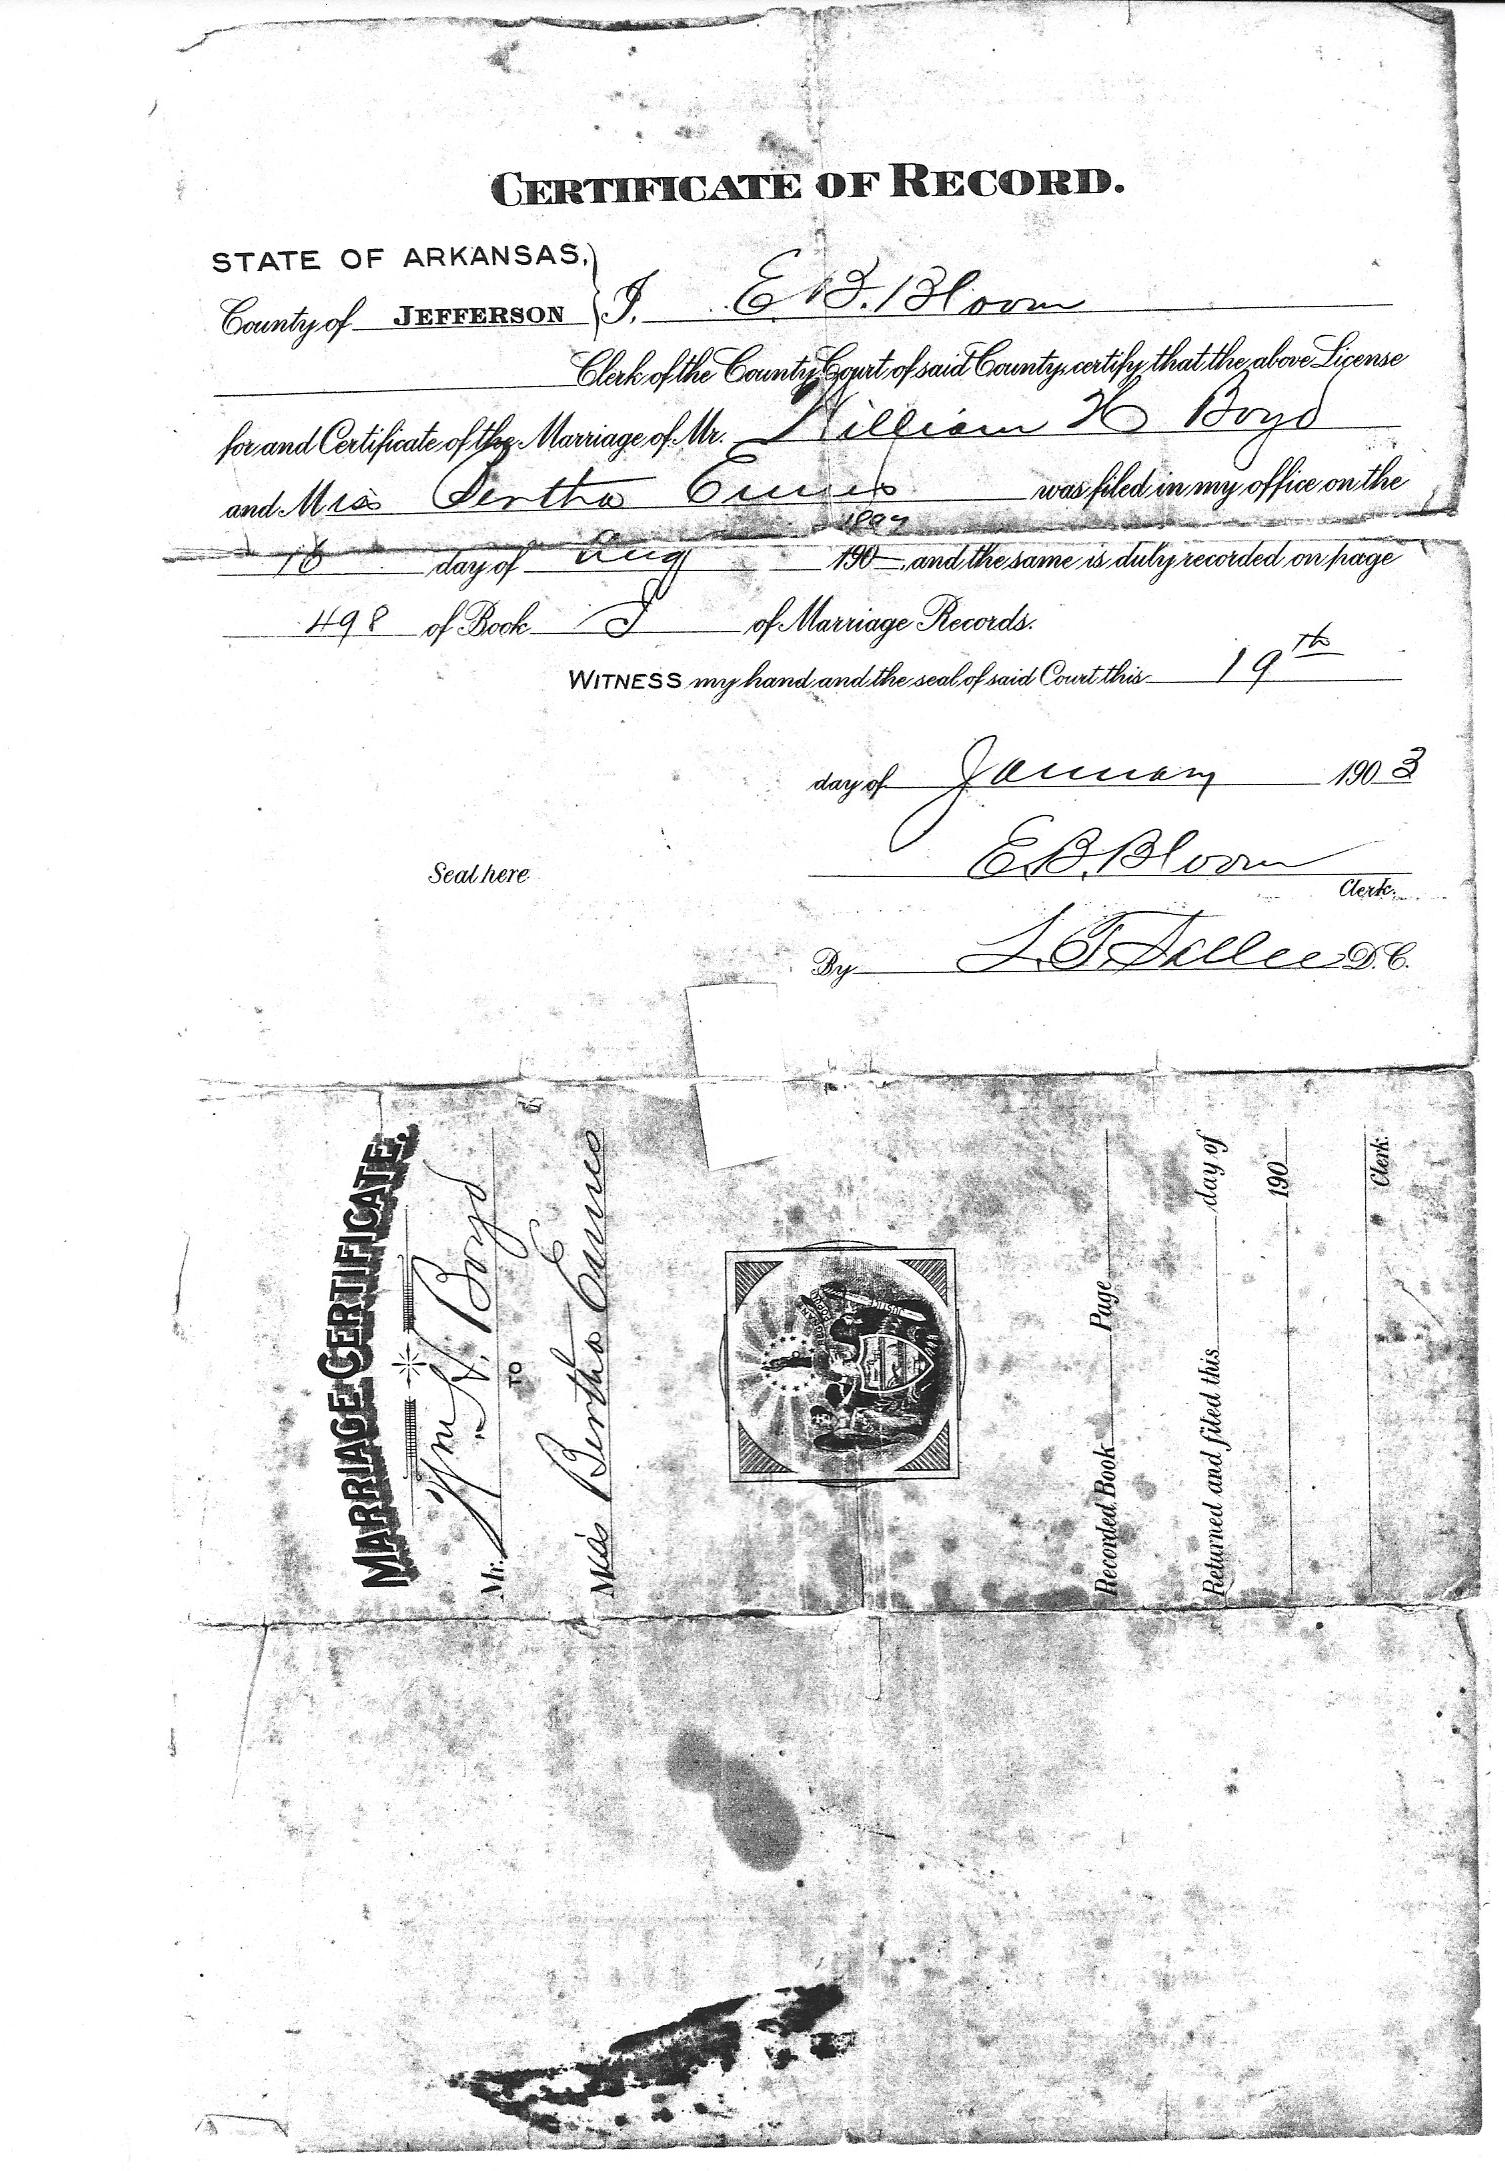 CERTIFICATE OF RECORD.
STATE OF ARKANSAS,
County of JEFFERSON I, E. B. Bloom
Clerk of the County Court of said County, certify that the above License
for and Certificate of the Marriage of Mr. William H Boyd
and Miss Bertha was filed in my office on the
day of Aug 190 , and the same is duly recorded on page
498 of Book of Marriage Records.
WITNESS my hand and the seal of said Court this 19th
day of January 1903
E. B. Bloom
Seal here
Clerk.
By L. T. D. C.
MARRIAGE CERTIFICATE.
Mr. Wm H. Boyd
TO
Miss Bertha
Recorded Book Page
Returned and filed this day of
190
Clerk.